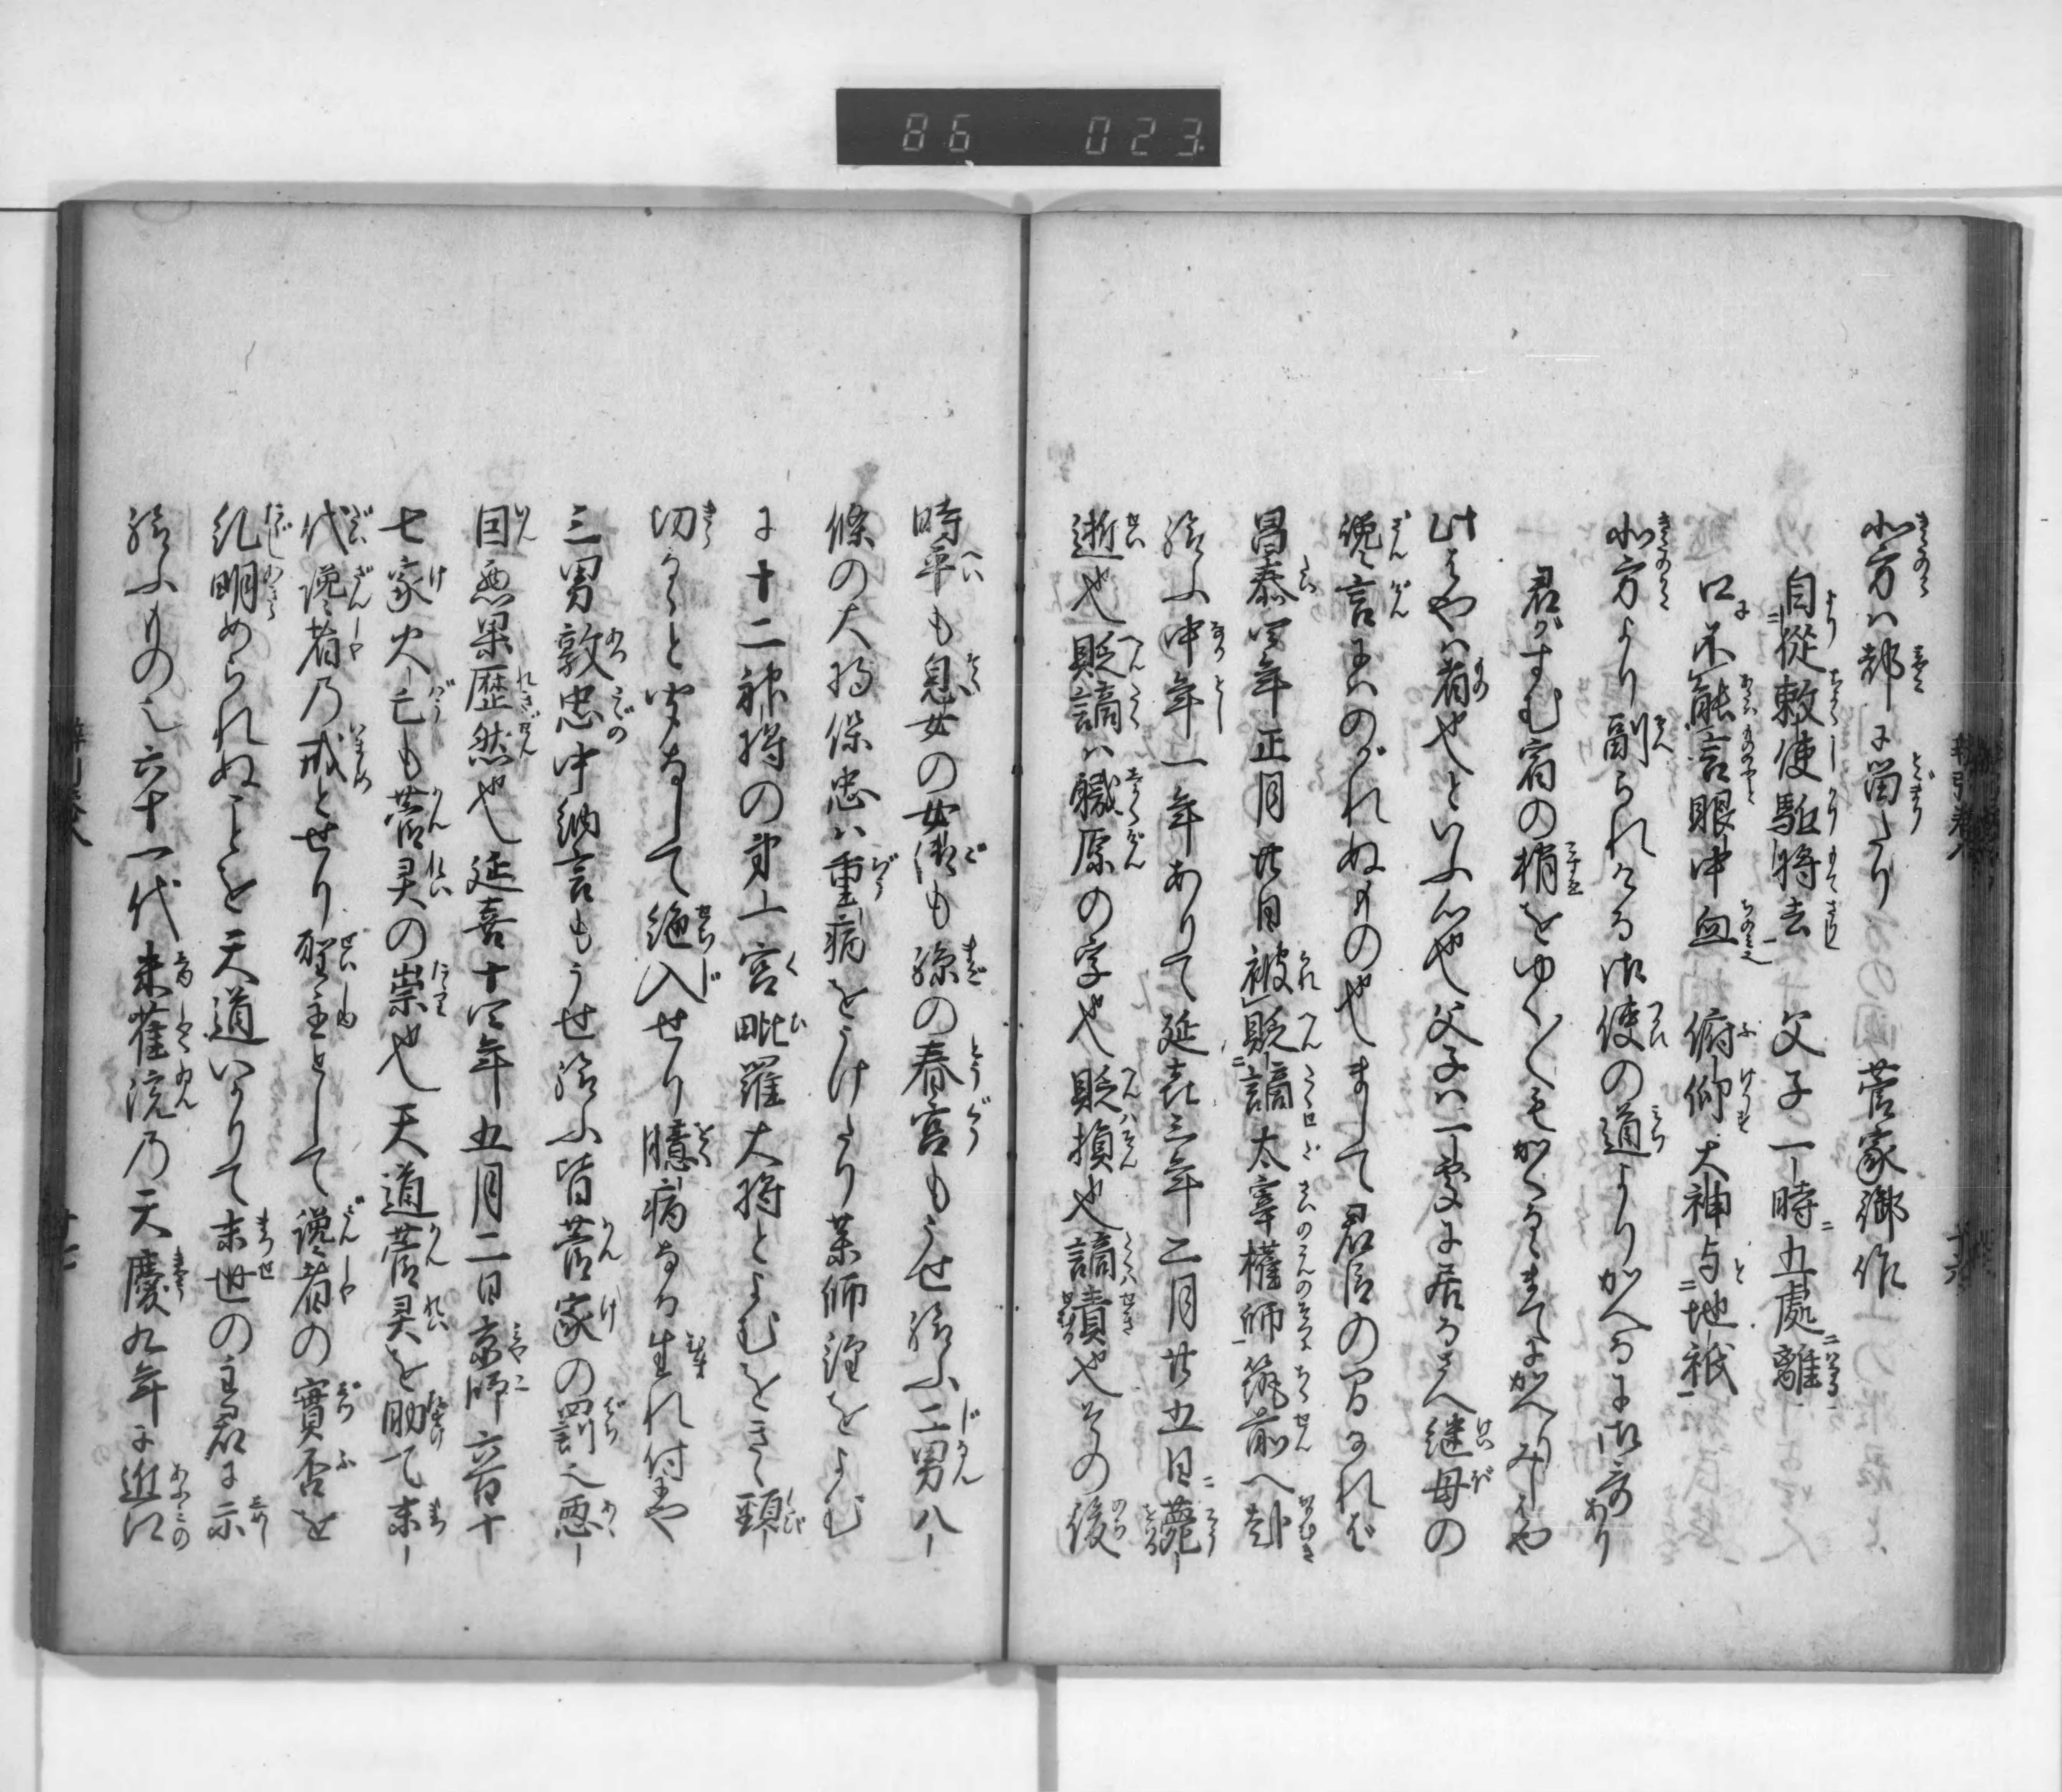 86 023
北方ハ都に留たり 菅家御作
自從敕使駈將去 父子一時五處離
口不能言眼中血 俯仰大神与地祇
北方より副られける御使の道よりかへるに御哥あり
君がすむ宿の梢をゆく/\もかくるゝまてにかへりみしはや
此はやハ者也といふ心也父子ハ一處に居るさへ継母の
讒言にハのがれぬもの也まして君臣の間なれば
昌泰四年正月廿日被貶謫太宰權師筑前へ赴
給ふ中年一年ありて延喜三年二月廿五日薨
逝也貶謫ハ職原の字也貶損也謫責也その後
時平も息女の女御も孫の春宮もうせ給ふ二男八
條の大将保忠ハ重病をうけたり薬師經をよむ
に十二神将の第一宮毗羅大将とよむをきゝ頸
切らると聞なして絶入せり臆病なる生れ付や
三男敦忠中納言もうせ給ふ皆菅家の罰也悪
因悪果歴然也延喜十四年五月二日京師六百十
七家火亡も菅灵の祟也天道菅灵を助て末
代讒者乃戒とせり聖主として讒者の實否を
糺明められぬことを天道いかりて末世の主君に示
給ふもの也六十一代朱雀院乃天慶九年に近江